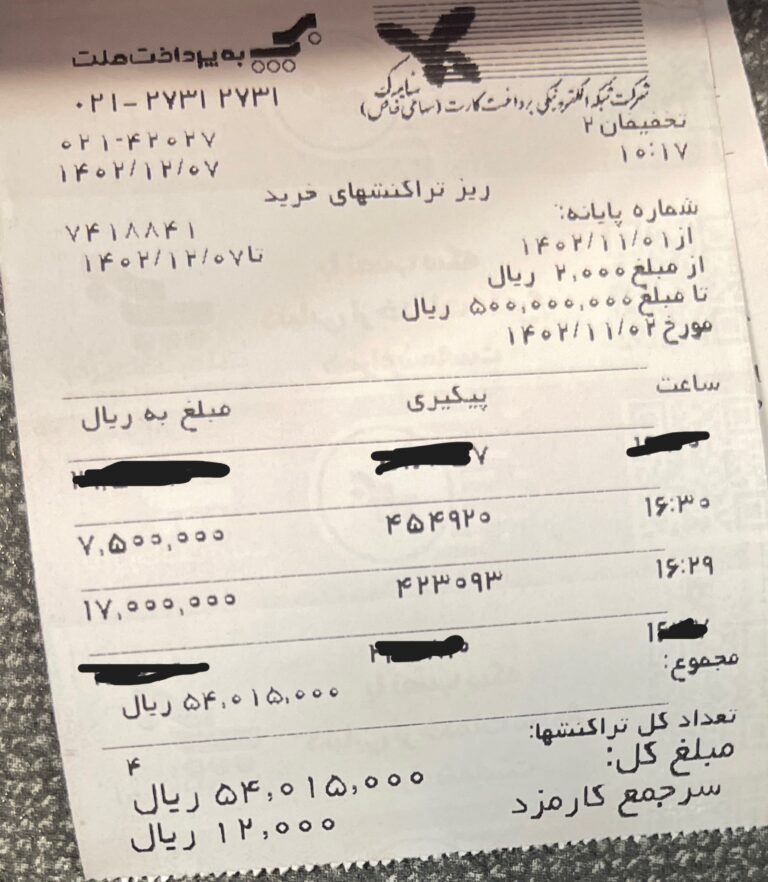 به پرداخت ملت
شرکت شبکه الکترونیکی پرداخت کارت (سهامی خاص)
۰۲۱-۲۷۳۱ ۲۷۳۱
تخفیفان ۲
۰۲۱-۴۲۰۲۷
۱۰:۱۷
۱۴۰۲/۱۲/۰۷
ریز تراکنشهای خرید
شماره پایانه: ۷۴۱۸۸۴۱
از ۱۴۰۲/۱۱/۰۱ تا ۱۴۰۲/۱۲/۰۷
از مبلغ ۲,۰۰۰ ریال
تا مبلغ ۵۰۰,۰۰۰,۰۰۰ ریال
مورخ ۱۴۰۲/۱۱/۰۲
ساعت پیگیری مبلغ به ریال
۱۶:۳۰ ۴۵۴۹۲۰ ۷,۵۰۰,۰۰۰
۱۶:۲۹ ۴۲۳۰۹۳ ۱۷,۰۰۰,۰۰۰
مجموع:
۵۴,۰۱۵,۰۰۰ ریال
تعداد کل تراکنشها:
۴
مبلغ کل: ۵۴,۰۱۵,۰۰۰ ریال
سرجمع کارمزد ۱۲,۰۰۰ ریال